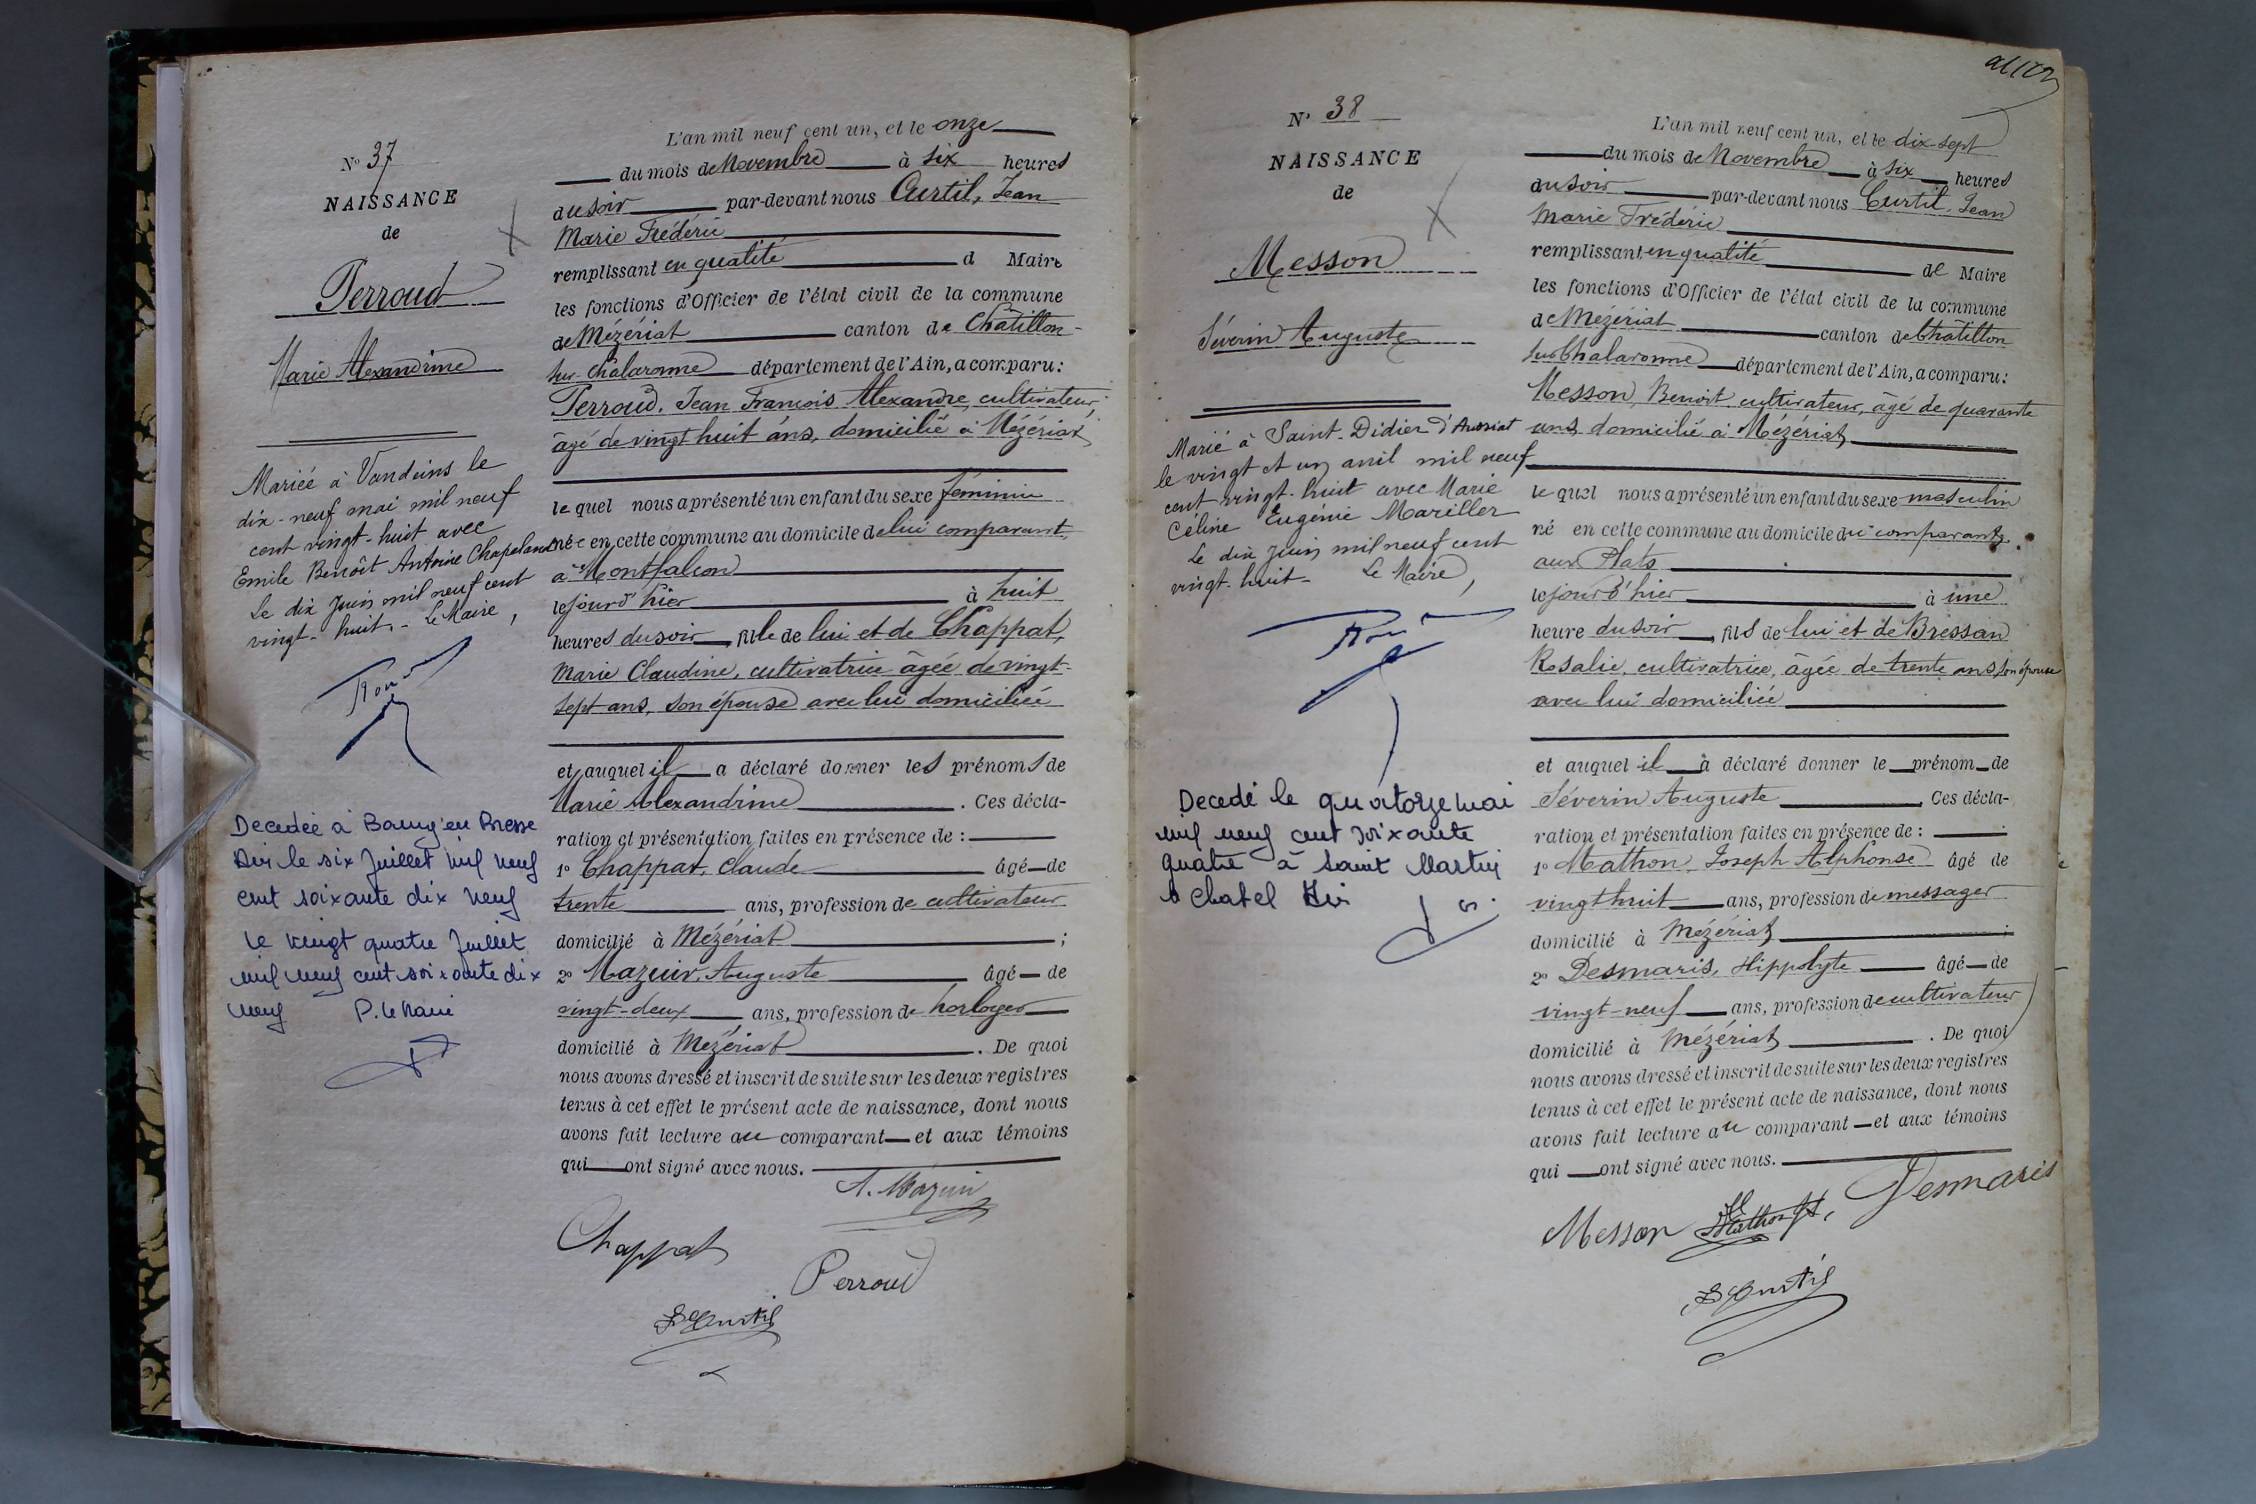 N° 37
NAISSANCE
de
Perroud
Marie Alexandrine
Mariée à Vandeins le
dix-neuf mai mil neuf
cent vingt-huit avec
Emile Benoît Antoine Chapeland
Le dix Juin mil neuf cent
vingt-huit. - Le Maire,
Decedée à Bourg en Bresse
Ain le six Juillet mil neuf
cent soixante dix neuf
Le vingt quatre Juillet
mil neuf cent soixante dix
neuf P. le Maire
L'an mil neuf cent un, et le onze
du mois de Novembre à six heures
du soir par-devant nous Curtil, Jean
Marie Frédéric
remplissant en qualité d Maire
les fonctions d'Officier de l'état civil de la commune
de Mézériat canton de Châtillon-
sur-Chalaronne département de l'Ain, a comparu:
Perroud, Jean François Alexandre, cultivateur,
âgé de vingt huit ans, domicilié à Mézériat
le quel nous a présenté un enfant du sexe féminin
née en cette commune au domicile de lui comparant,
à Montfalcon
le jour d'hier à huit
heures du soir, fille de lui et de Chappat,
Marie Claudine, cultivatrice âgée de vingt-
sept ans, son épouse avec lui domiciliée
et auquel il a déclaré donner les prénoms de
Marie Alexandrine. Ces décla-
ration et présentation faites en présence de :
1° Chappat, Claude âgé de
trente ans, profession de cultivateur
domicilié à Mézériat ;
2° Mazuir, Auguste âgé de
vingt-deux ans, profession de horloger
domicilié à Mézériat. De quoi
nous avons dressé et inscrit de suite sur les deux registres
tenus à cet effet le présent acte de naissance, dont nous
avons fait lecture au comparant et aux témoins
qui ont signé avec nous.
A. Mazuir
Chappat
Perroud
Curtil
N° 38
NAISSANCE
de
Messon
Séverin Auguste
Marié à Saint-Didier d'Aussiat
le vingt et un avril mil neuf
cent vingt-huit avec Marie
Céline Eugénie Mariller
Le dix Juin mil neuf cent
vingt-huit - Le Maire,
Decedé le quatorze mai
mil neuf cent soixante
quatre à Saint Martin
le Chatel Ain
L'an mil neuf cent un, et le dix-sept
du mois de Novembre à six heures
du soir par-devant nous Curtil, Jean
Marie Frédéric
remplissant en qualité de Maire
les fonctions d'Officier de l'état civil de la commune
de Mézériat canton de Châtillon
sur Chalaronne département de l'Ain, a comparu:
Messon, Benoît cultivateur, âgé de quarante
ans, domicilié à Mézériat
le quel nous a présenté un enfant du sexe masculin
né en cette commune au domicile du comparant,
aux Plats
le jour d'hier à une
heure du soir, fils de lui et de Bressan
Rosalie, cultivatrice, âgée de trente ans, son épouse
avec lui domiciliée
et auquel il a déclaré donner le prénom de
Séverin Auguste. Ces décla-
ration et présentation faites en présence de :
1° Mathon, Joseph Alphonse âgé de
vingt huit ans, profession de messager
domicilié à Mézériat ;
2° Desmaris, Hippolyte âgé de
vingt-neuf ans, profession de cultivateur
domicilié à Mézériat. De quoi
nous avons dressé et inscrit de suite sur les deux registres
tenus à cet effet le présent acte de naissance, dont nous
avons fait lecture au comparant et aux témoins
qui ont signé avec nous.
Messon Mathon Desmaris
Curtil